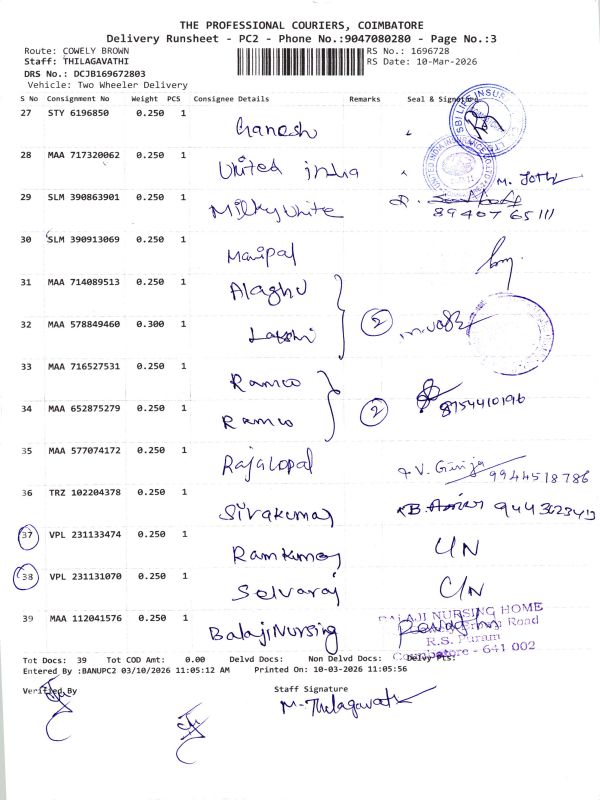 THE PROFESSIONAL COURIERS, COIMBATORE
Delivery Runsheet - PC2 - Phone No.:9047080280 - Page No.:3
Route: COWELY BROWN RS No.: 1696728
Staff: THILAGAVATHI RS Date: 10-Mar-2026
DRS No.: DCJB169672803
Vehicle: Two Wheeler Delivery
S No Consignment No Weight PCS Consignee Details Remarks Seal & Signature
27 STY 6196850 0.250 1 Ganesh
28 MAA 717320062 0.250 1 United india
M. Jothi
29 SLM 390863901 0.250 1 Milky white
89407 65111
30 SLM 390913069 0.250 1 Manipal
31 MAA 714089513 0.250 1 Alaghu
32 MAA 578849460 0.300 1 Lakshi 2
33 MAA 716527531 0.250 1 Ramco
34 MAA 652875279 0.250 1 Ramco 2 8754410196
35 MAA 577074172 0.250 1 RajaGopal V. Girija 9944518786
36 TRZ 102204378 0.250 1 Sivakumar
37 VPL 231133474 0.250 1 Ramkumar C/N
38 VPL 231131070 0.250 1 Selvaraj C/N
39 MAA 112041576 0.250 1 Balaji Nursing
BALAJI NURSING HOME
Road
R.S. Puram
Coimbatore - 641 002
Tot Docs: 39 Tot COD Amt: 0.00 Delvd Docs: Non Delvd Docs: Delvy Pts:
Entered By :BANUPC2 03/10/2026 11:05:12 AM Printed On: 10-03-2026 11:05:56
Verified By Staff Signature
M. Thilagavathi